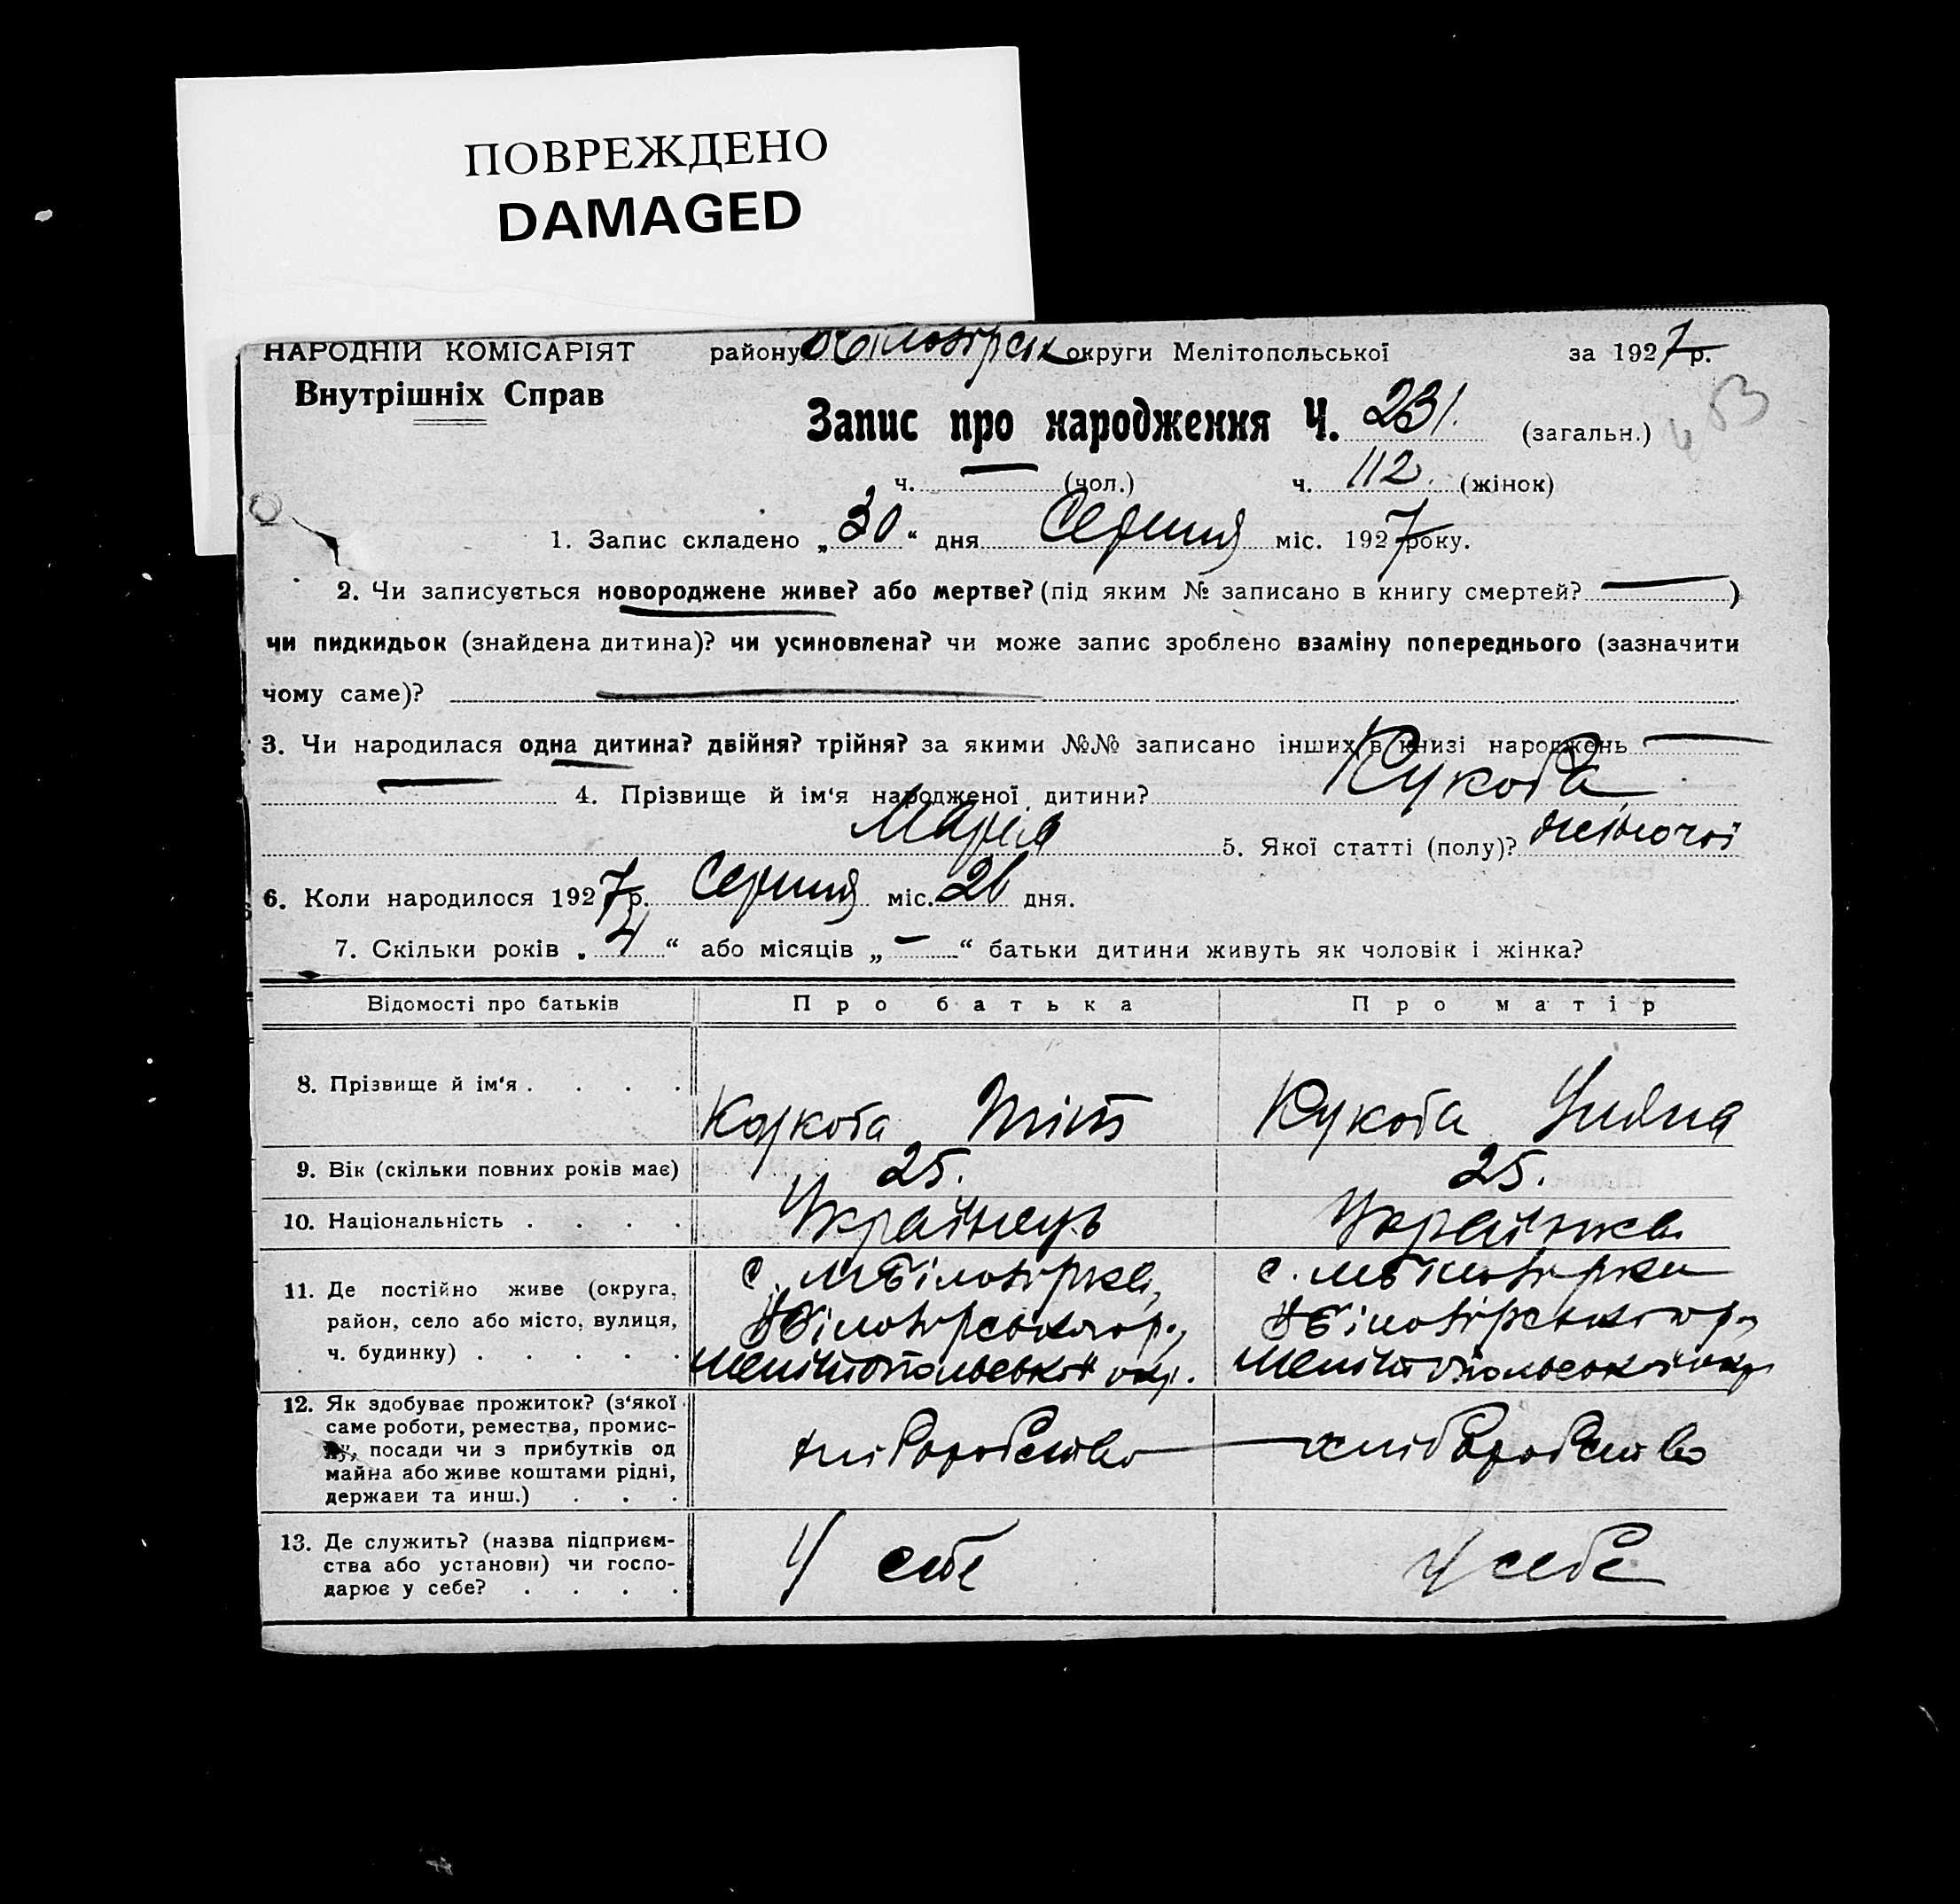 ПОВРЕЖДЕНО
DAMAGED
НАРОДНІЙ КОМІСАРІЯТ району округи Мелітопольської за 1927 р.
Внутрішніх Справ
Запис про народження Ч. 231. (загальн.)
ч. — (чол.) ч. 112. (жінок)
1. Запис складено „30“ дня Серпня міс. 1927 року.
2. Чи записується новороджене живе? або мертве? (під яким № записано в книгу смертей? — )
чи пидкидьок (знайдена дитина)? чи усиновлена? чи може запис зроблено взаміну попереднього (зазначити
чому саме)? —
3. Чи народилася одна дитина? двійня? трійня? за якими №№ записано інших в книзі народжень —
— 4. Прізвище й ім'я народженої дитини? Кукоба
Марія 5. Якої статті (полу)? жіночої
6. Коли народилося 1927 р. Серпня міс. 26 дня.
7. Скільки років „4“ або місяців „—“ батьки дитини живуть як чоловік і жінка?
Відомості про батьків Про батька Про матір
8. Прізвище й ім'я . . . . Тіт Кукоба Уляна
9. Вік (скільки повних років має) 25. 25.
10. Національність . . . . Українець Українка
11. Де постійно живе (округа, с. М Білозірка, с. М Білозірка
район, село або місто, вулиця, р., р.,
ч. будинку) . . . . . Мелітопольської окр. Мелітопольської окр.
12. Як здобуває прожиток? (з'якої
саме роботи, ремества, промис-
лу, посади чи з прибутків од хліборобство — хліборобство
майна або живе коштами рідні,
держави та инш.) . . .
13. Де служить? (назва підприєм-
ства або установи) чи госпо- У себе У себе
дарює у себе? . . . .